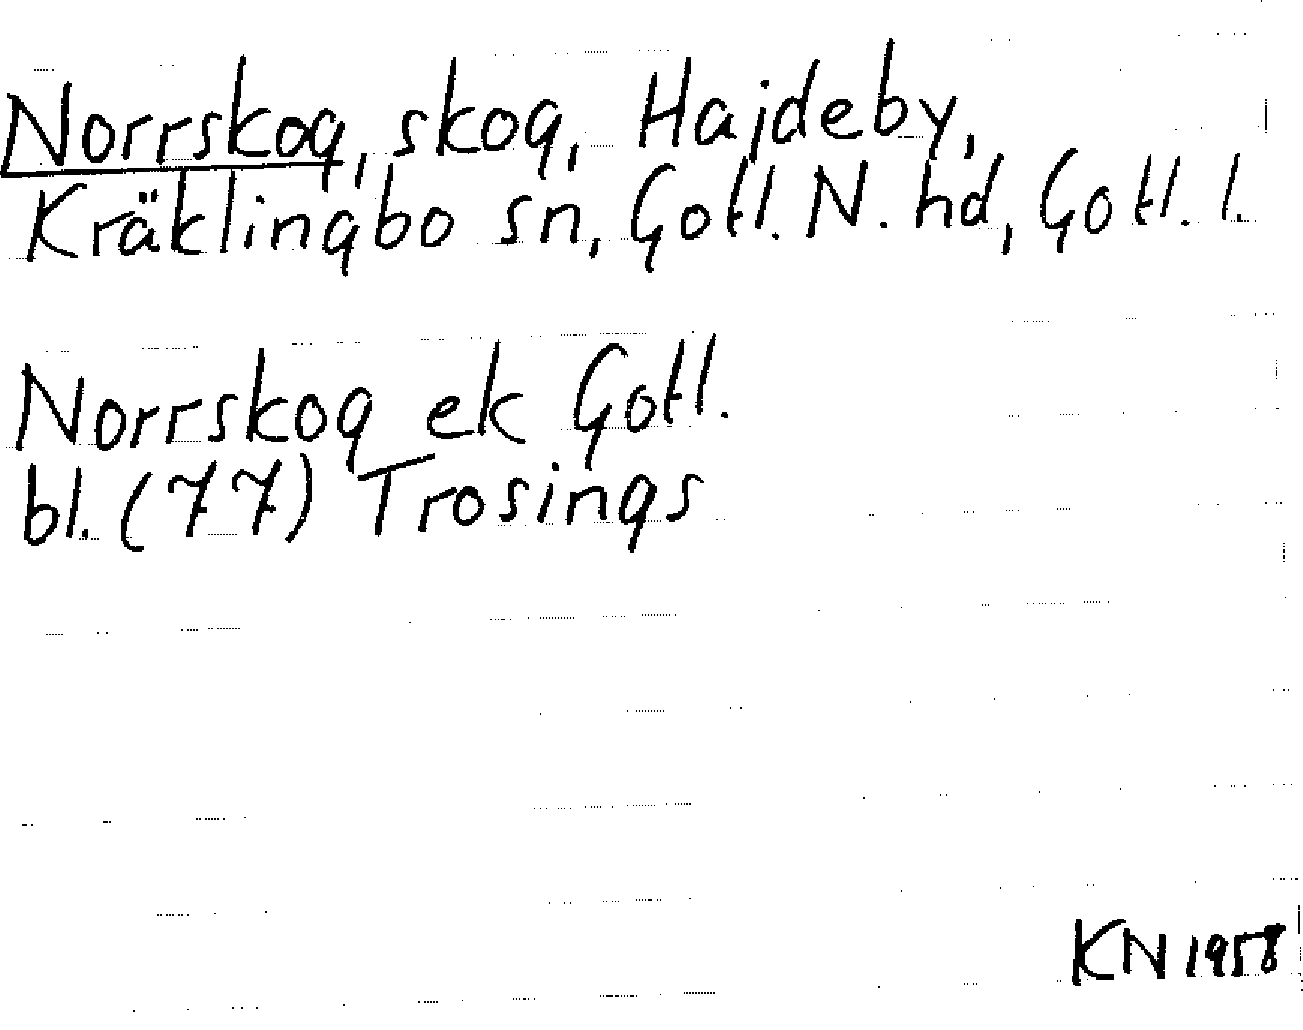 Norrskog, skog, Hajdeby,
Kräklingbo sn, Gotl. N. hd, Gotl. l.
Norrskog ek Gotl.
bl. (77) Trosings
KN 1958